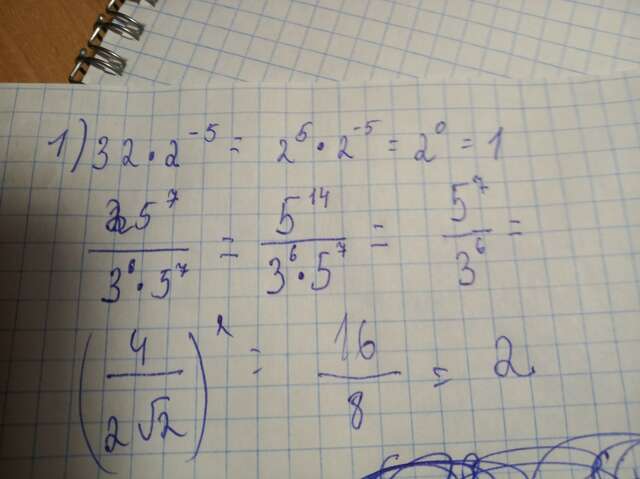 1) 32 · 2^-5 = 2^5 · 2^-5 = 2^0 = 1
25^7 / (3^6 · 5^7) = 5^14 / (3^6 · 5^7) = 5^7 / 3^6 =
(4 / (2√2))^2 = 16 / 8 = 2